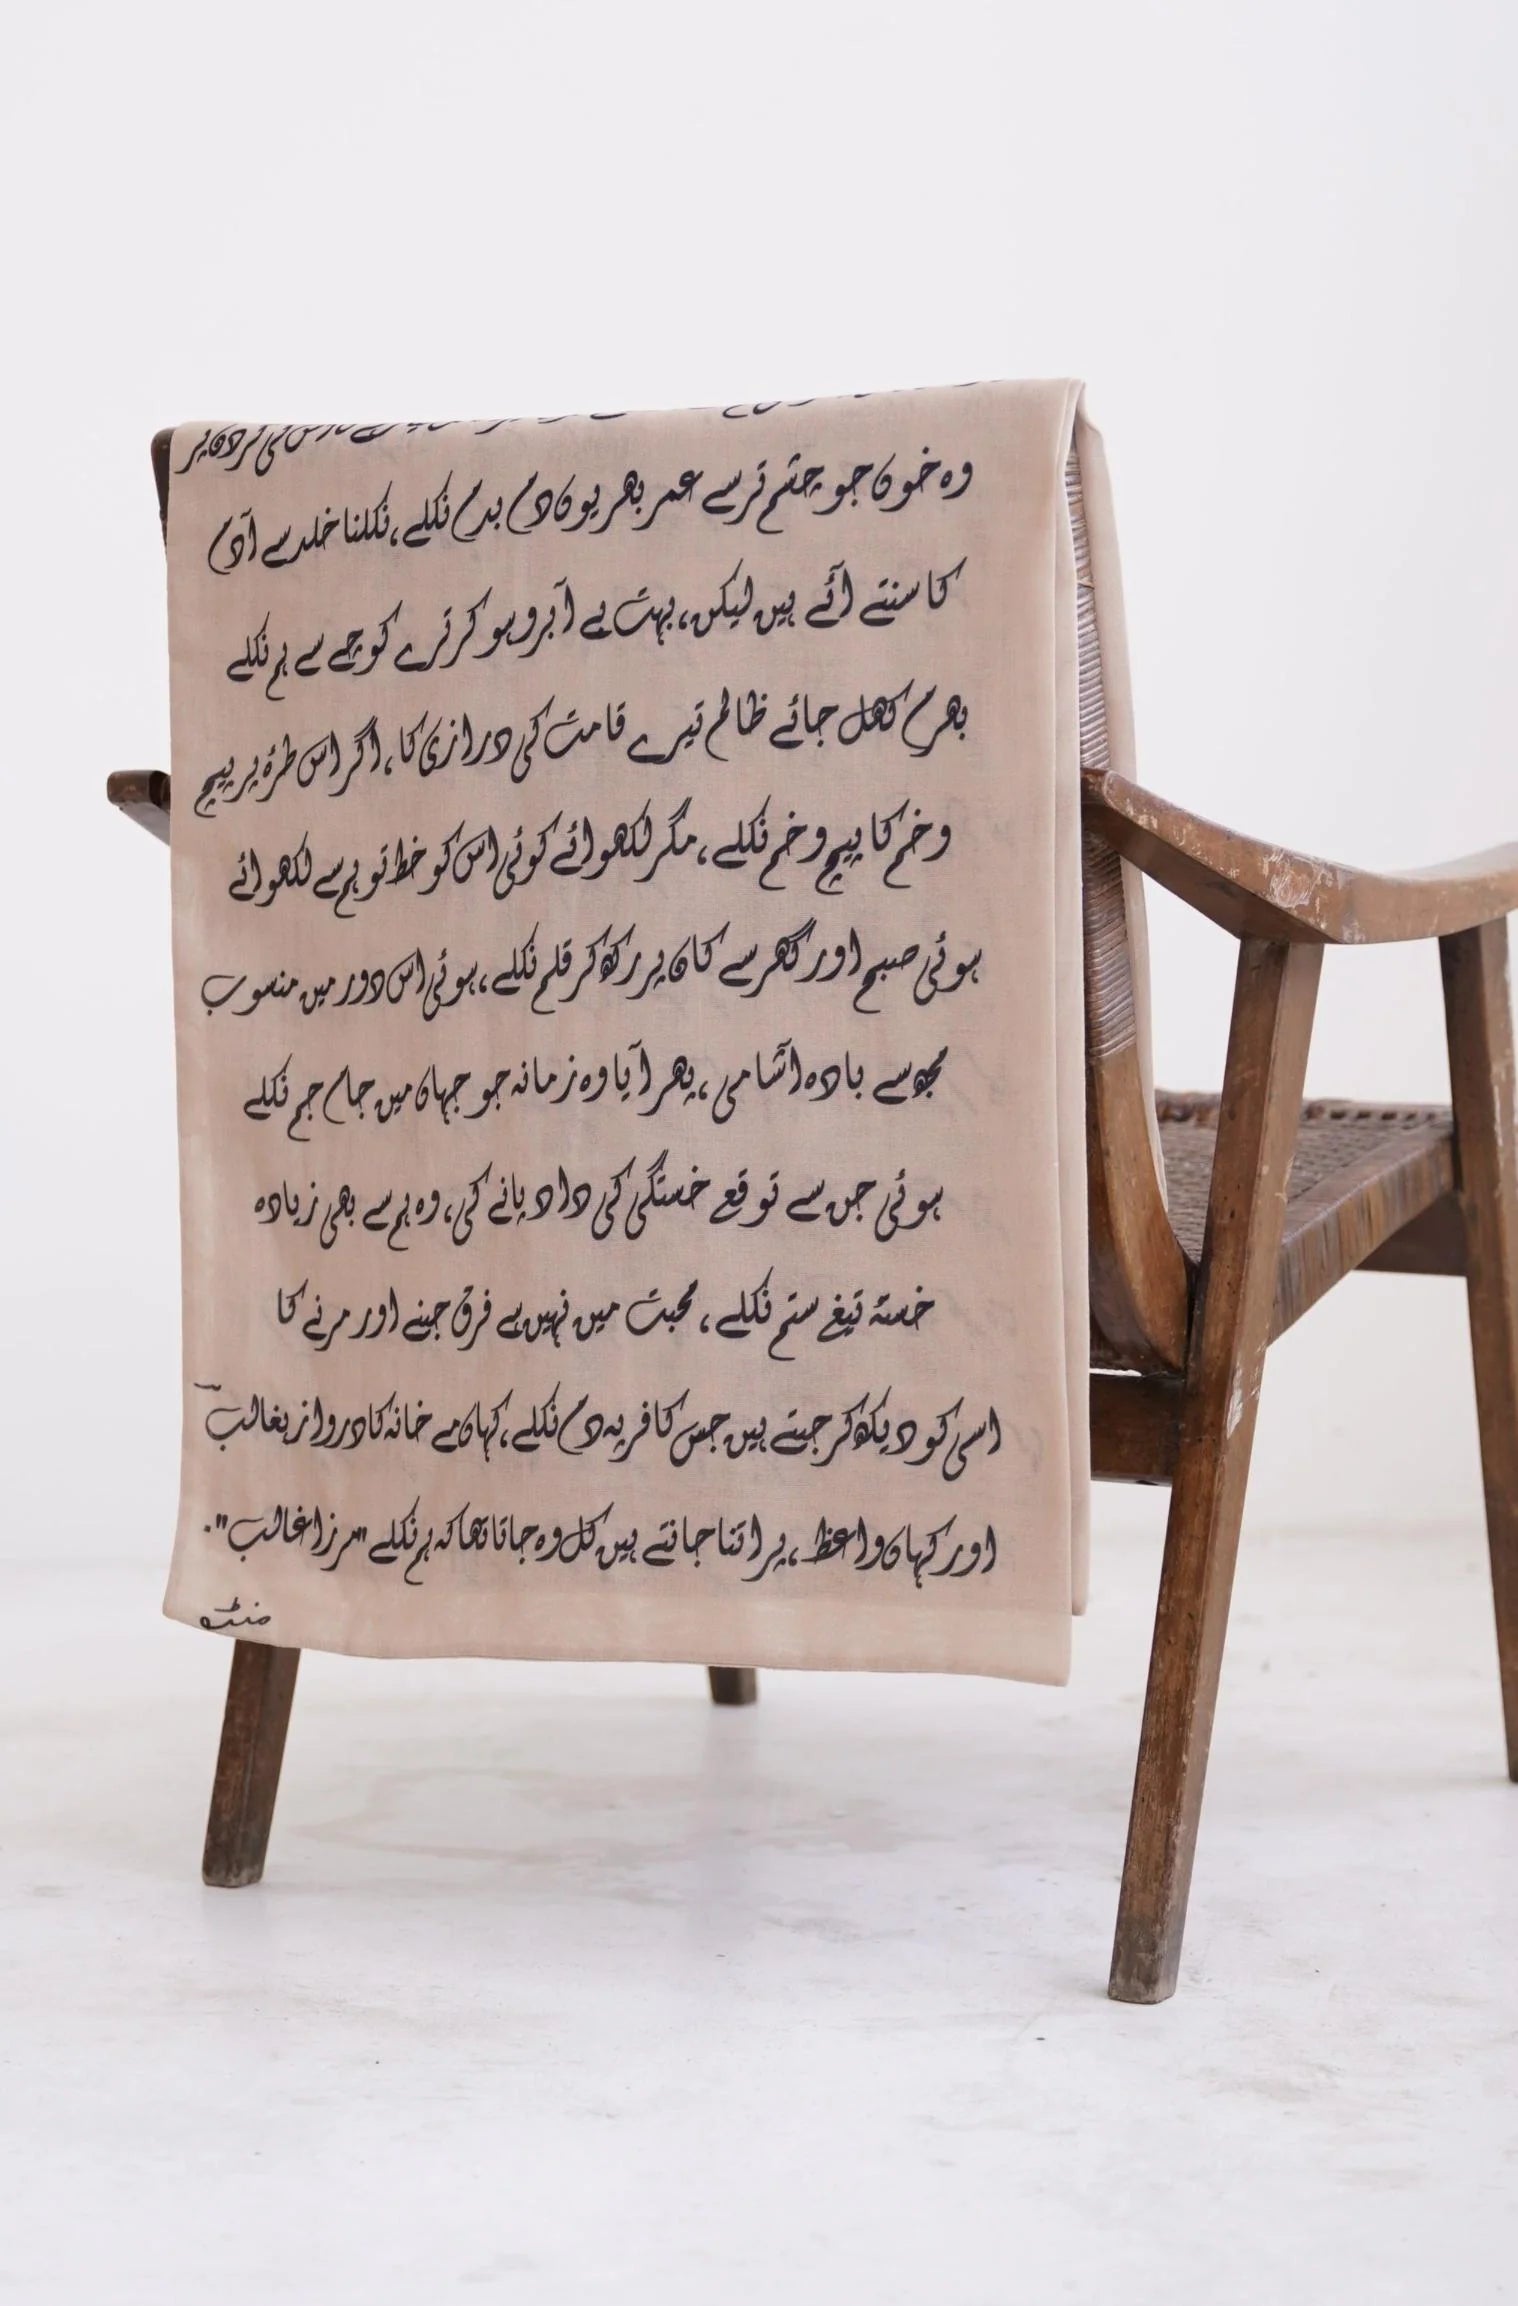 کی گردن پر
وہ خون جو چشم تر سے عمر بھر یوں دم بدم نکلے، نکلنا خلد سے آدم
کا سنتے آئے ہیں لیکن، بہت بے آبرو ہو کر ترے کوچے سے ہم نکلے
بھرم کھل جائے ظالم تیرے قامت کی درازی کا، اگر اس طرۂ پر پیچ
و خم کا پیچ و خم نکلے، مگر لکھوائے کوئی اس کو خط تو ہم سے لکھوائے
ہوئی صبح اور گھر سے کان پر رکھ کر قلم نکلے، ہوئی اس دور میں منسوب
مجھ سے بادہ آشامی، پھر آیا وہ زمانہ جو جہاں میں جام جم نکلے
ہوئی جن سے توقع خستگی کی داد پانے کی، وہ ہم سے بھی زیادہ
خستۂ تیغ ستم نکلے، محبت میں نہیں ہے فرق جینے اور مرنے کا
اسی کو دیکھ کر جیتے ہیں جس کافر پہ دم نکلے، کہاں مے خانہ کا دروازہ غالب
اور کہاں واعظ، پر اتنا جانتے ہیں کل وہ جاتا تھا کہ ہم نکلے "مرزا غالب".
منٹو